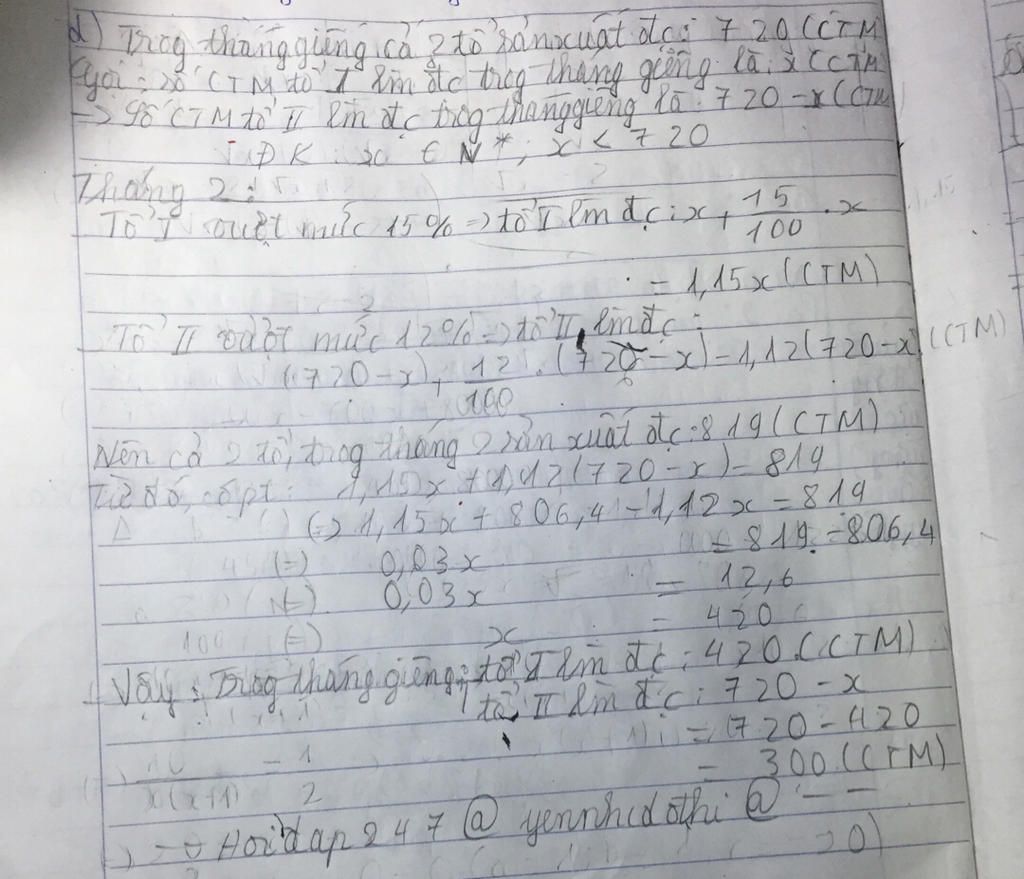 d) Trog tháng giêng cả 2 tổ sản xuất đc: 720 (CTM
Gọi: số CTM tổ I làm đc trog tháng giêng là: x (CTM
-> Số CTM tổ II làm đc trog tháng giêng là: 720 - x (CTM
ĐK: x ∈ N*; x < 720
Tháng 2:
Tổ I vượt mức 15% => tổ I làm đc: x + 15/100 . x
= 1,15x (CTM)
Tổ II vượt mức 12% => tổ II làm đc:
(720 - x) + 12/100 . (720 - x) = 1,12 (720 - x) (CTM)
Nên cả 2 tổ, trog tháng 2 sản xuất đc: 819 (CTM)
Từ đó, có pt: 1,15x + 1,12 (720 - x) = 819
(=) 1,15x + 806,4 - 1,12x = 819
(=) 0,03x = 819 - 806,4
(=) 0,03x = 12,6
(=) x = 420
Vậy: Trog tháng giêng; tổ I làm đc: 420 (CTM)
tổ II làm đc: 720 - x
= 720 - 420
= 300 (CTM)
Hoidap247 @ yennhidothi @